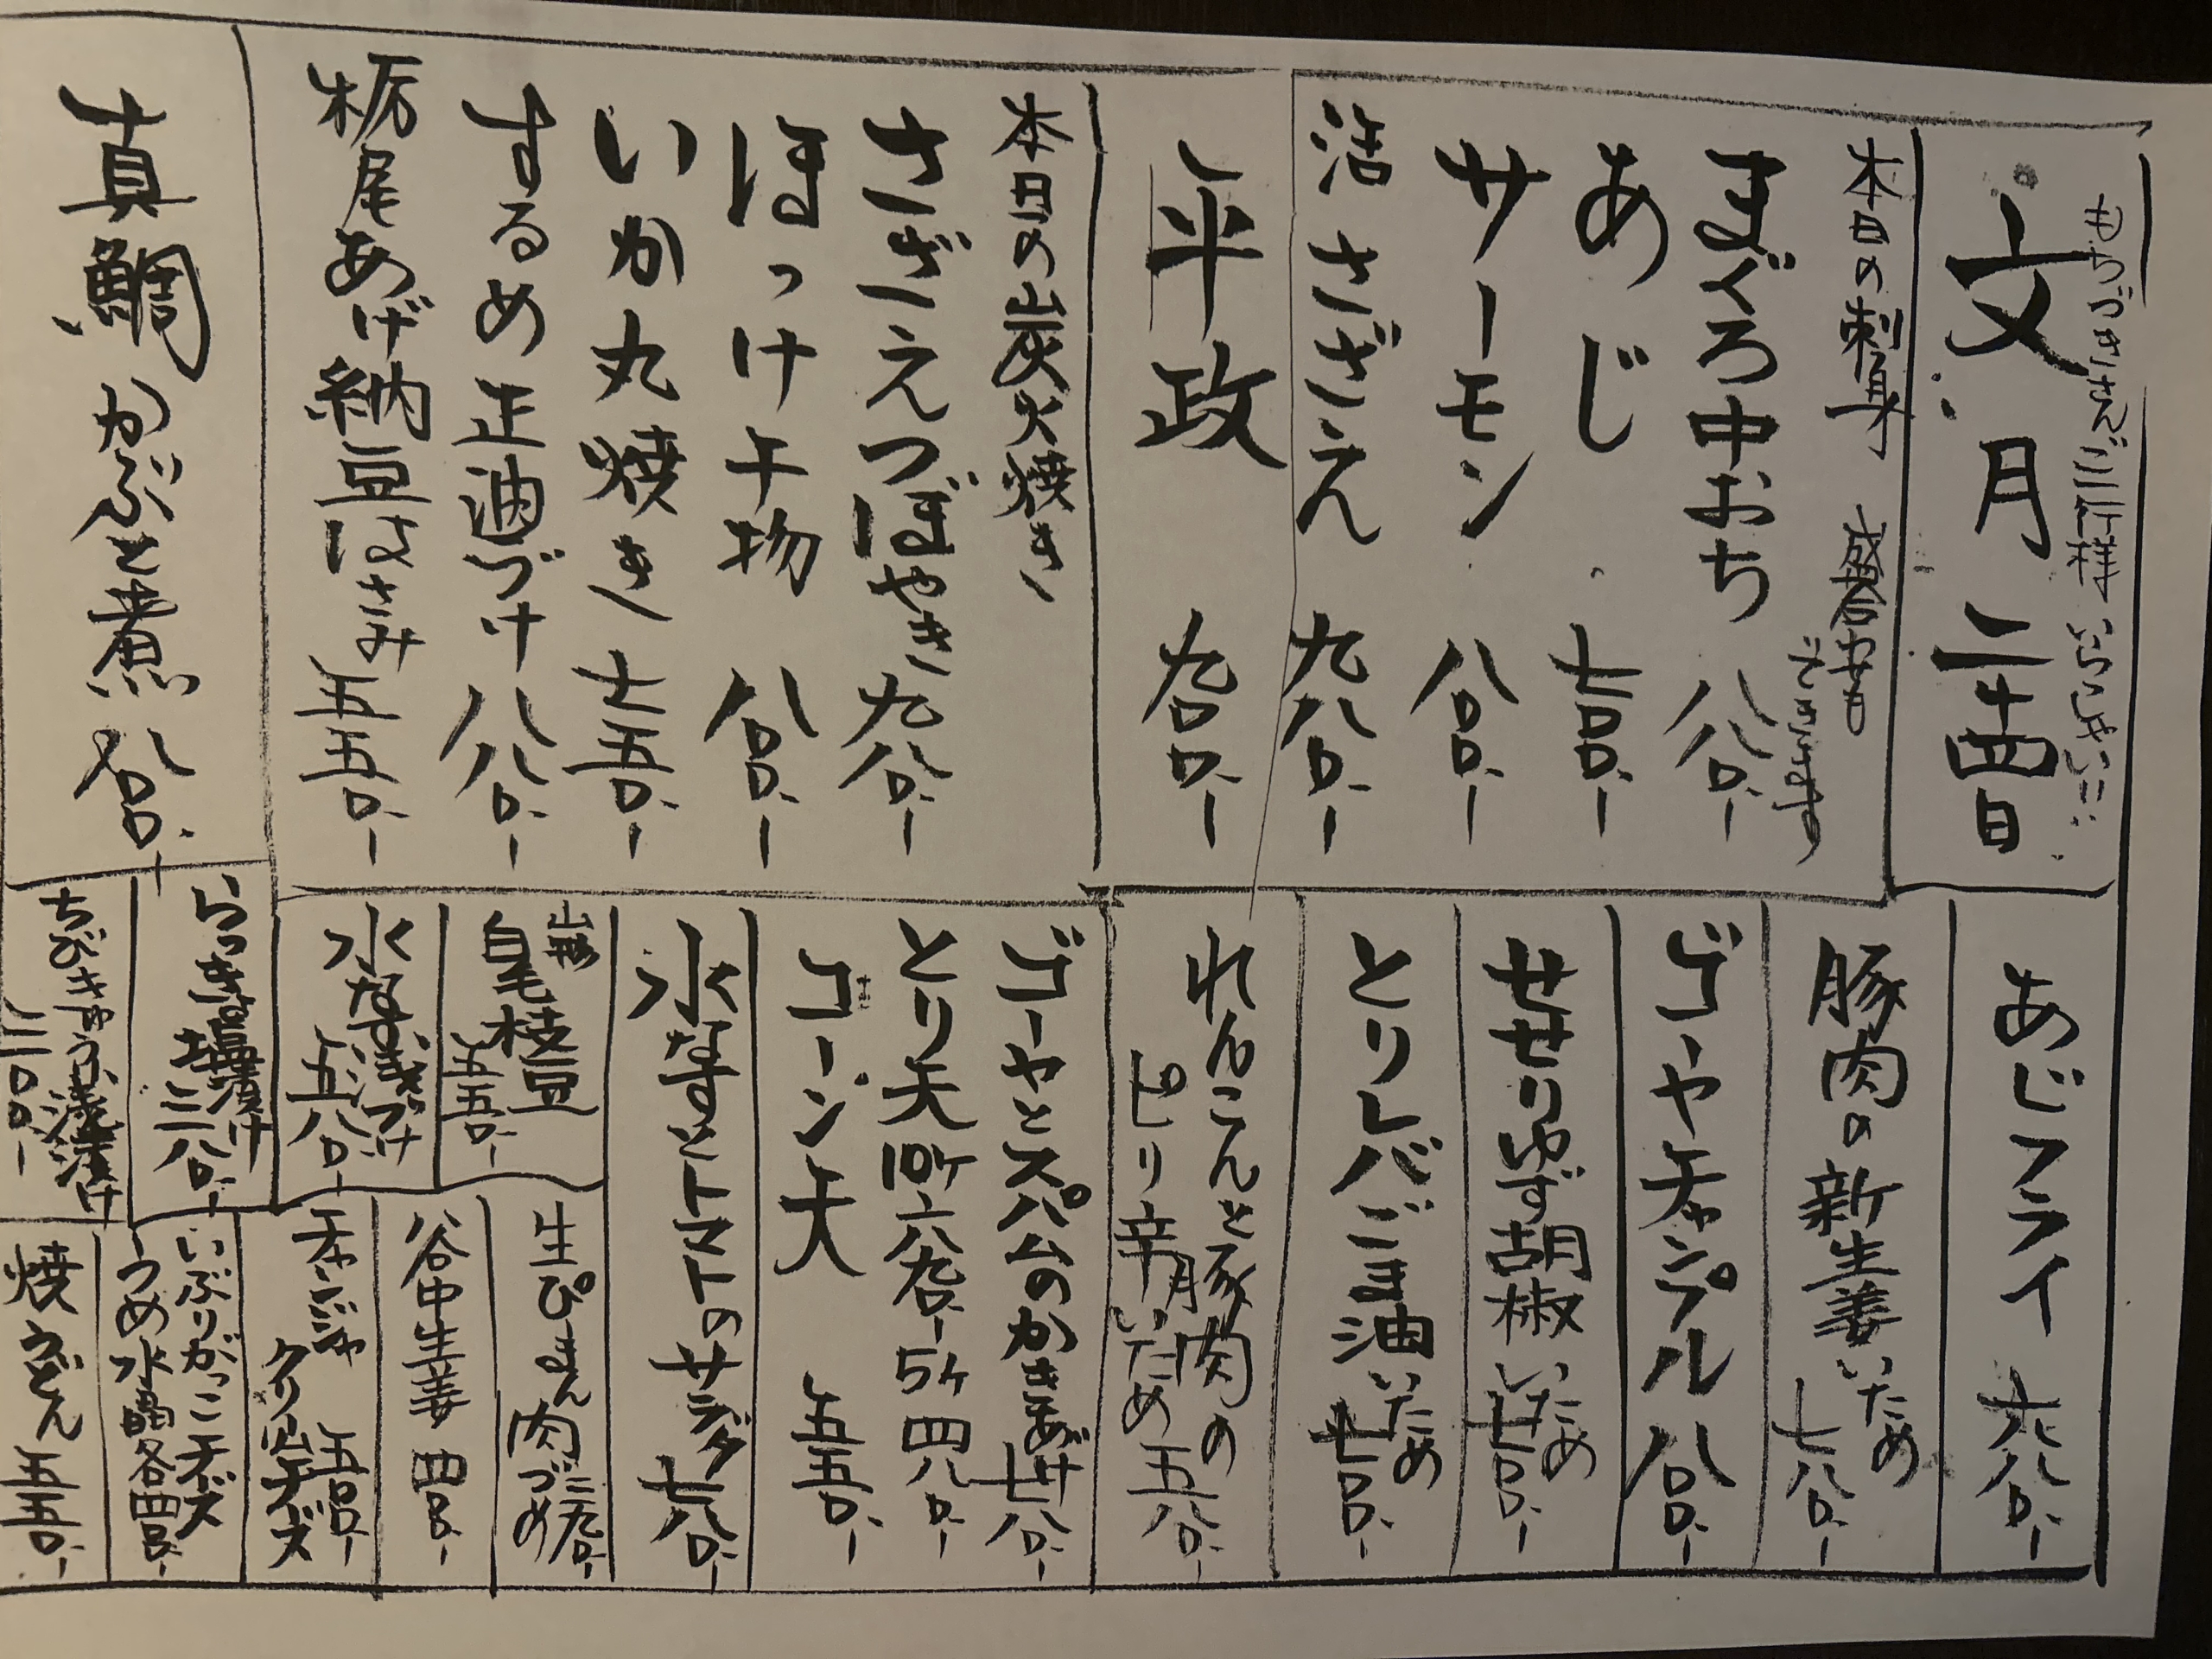 もちづきさんご一行様 いらっしゃい!!
文月二十四日
本日の刺身 盛合わせも
できます
まぐろ中おち 八八〇.ー
あじ 七〇〇.ー
サーモン 八〇〇.ー
活さざえ 九八〇.ー
平政 九〇〇.ー
本日の炭火焼き
さざえつぼやき 九八〇.ー
ほっけ干物 八〇〇.ー
いか丸焼き 七五〇.ー
するめ正油づけ 八八〇.ー
栃尾あげ納豆はさみ 五五〇.ー
真鯛かぶと煮 八〇〇.ー
あじフライ 六八〇.ー
豚肉の新生姜いため
七八〇.ー
ゴーヤチャンプル 八〇〇.ー
せせりゆず胡椒いため
七〇〇.ー
とりレバごま油いため
七〇〇.ー
れんこんと豚肉の
ピリ辛いため 五八〇.ー
ゴーヤとスパムのかきあげ 七八〇.ー
とり天 10ケ 六九〇.ー 5ケ 四八〇.ー
コーン天 五五〇.ー
水なすとトマトのサラダ 七八〇.ー
山形
白毛枝豆
五五〇.ー
水なす浅づけ
五八〇.ー
らっきょ塩漬け
三八〇.ー
ちびきゅうり浅漬け
三〇〇.ー
生ぴーまん肉づめ
谷中生姜 四〇〇.ー
チャンジャ 五〇〇.ー
クリームチーズ
いぶりがっこチーズ
うめ水晶 各四〇〇.ー
焼うどん 五五〇.ー